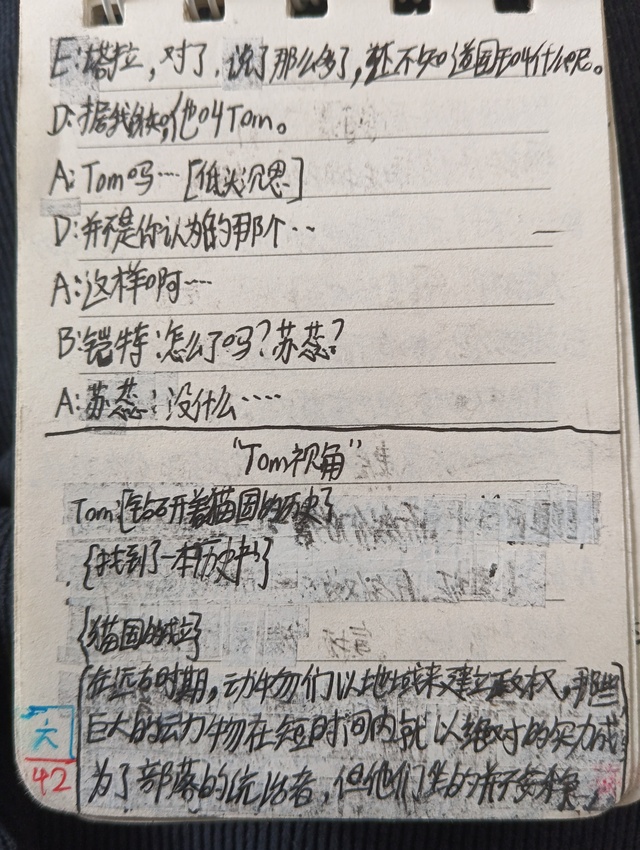 E:塔拉，对了，说了那么多了，还不知道国王叫什么呢。
D:据我所知，他叫Tom。
A:Tom吗……[低头沉思]
D:并不是你认为的那个…
A:这样啊……
B:铠特:怎么了吗?苏蕊?
A:苏蕊:没什么……
“Tom视角”
Tom:[钻研着猫国的历史]
{找到了一本历史书}
{猫国的成立}
[在远古时期，动物们以地域来建立政权，那些
巨大的动物在短时间内就以绝对的实力成
为了部落的统治者，但他们生的并不安稳
六
42